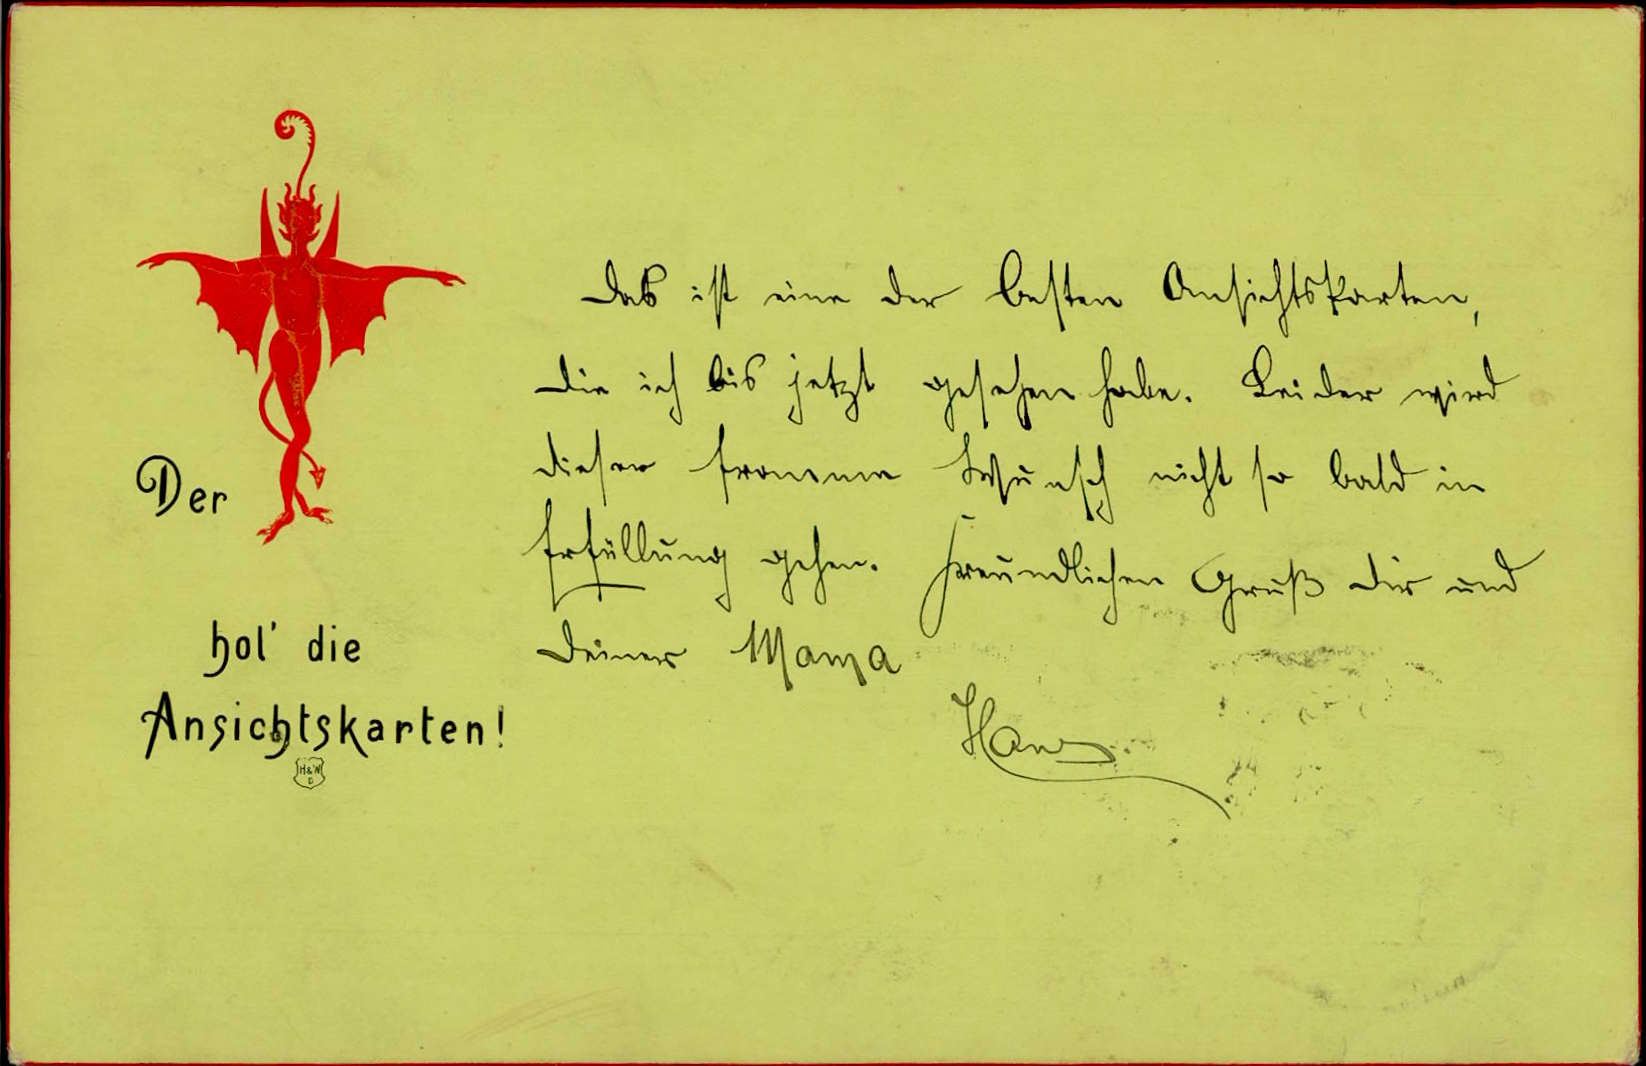 Der
hol' die
Ansichtskarten!
H&W
D
Das ist eine der besten Ansichtskarten,
die ich bis jetzt gesehen habe. Leider wird
dieser fromme Wunsch nicht so bald in
Erfüllung gehen. Freundlichen Gruß Dir und
Deiner Mama
Hans.